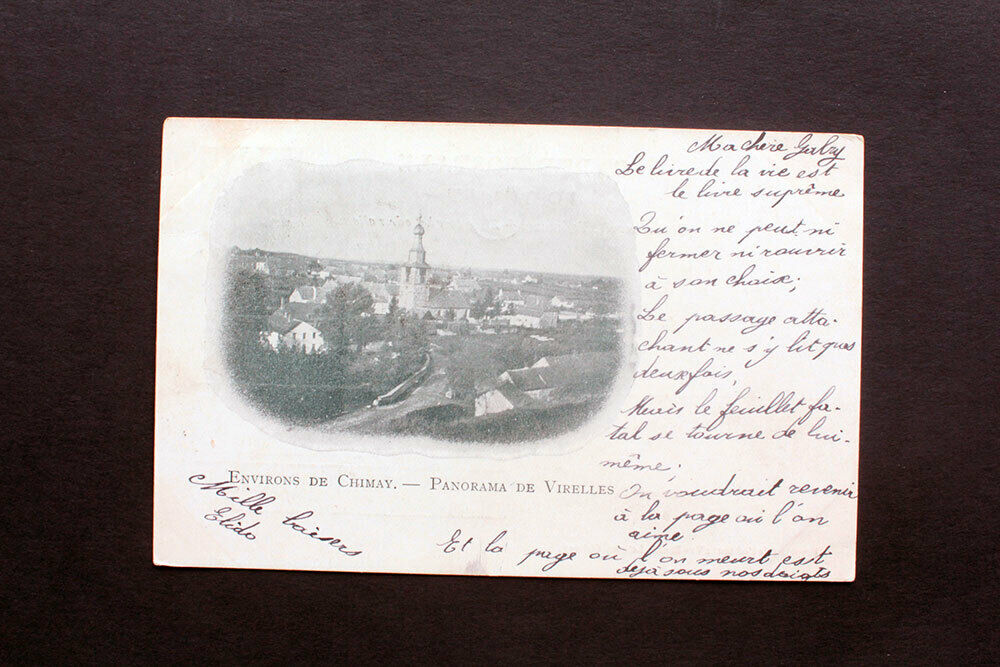 Ma chère Gaby
Le livre de la vie est
le livre suprême
Qu'on ne peut ni
fermer ni rouvrir
à son choix;
Le passage atta-
chant ne s'y lit pas
deux fois,
Mais le feuillet fa-
tal se tourne de lui-
même;
On voudrait revenir
à la page où l'on
aime
Et la page où l'on meurt est
déjà sous nos doigts
ENVIRONS DE CHIMAY. — PANORAMA DE VIRELLES
Mille baisers
Elido